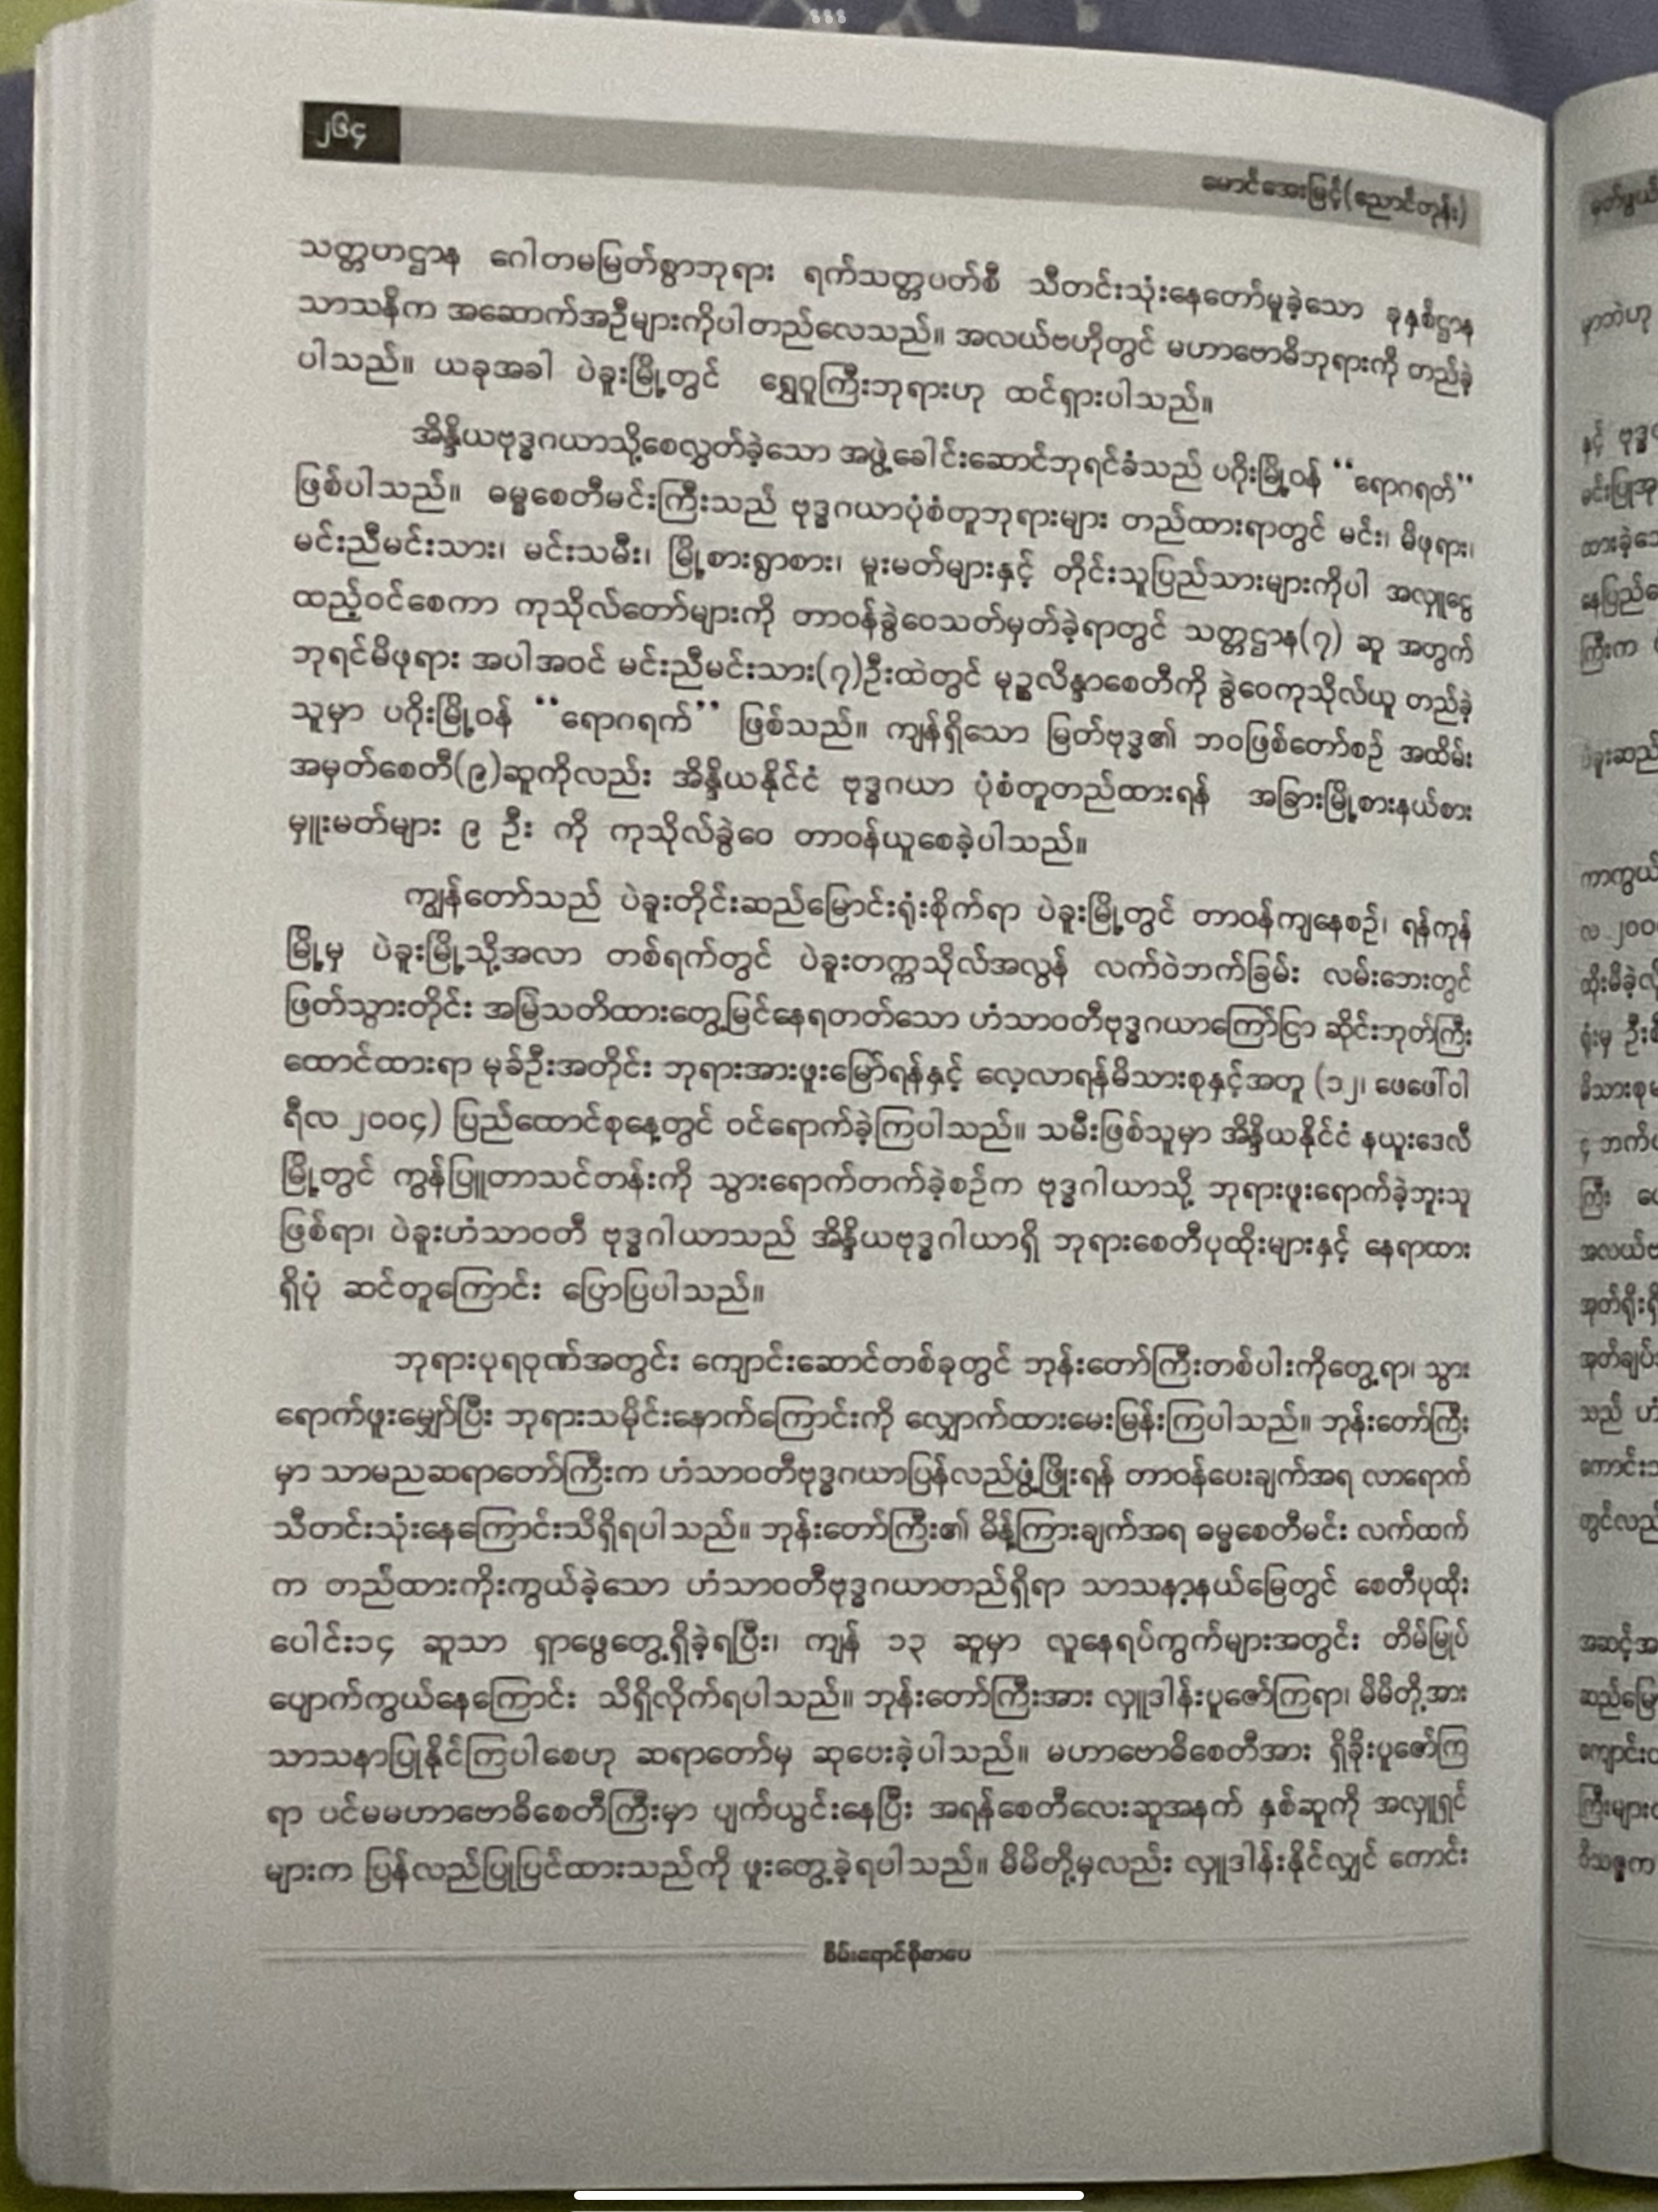 ၂၆၄
မောင်အေးမြင့်(ညောင်တုန်း)
သတ္တဟဌာန ဂေါတမမြတ်စွာဘုရား ရက်သတ္တပတ်စီ သီတင်းသုံးနေတော်မူခဲ့သော ခုနှစ်ဌာန
သာသနိက အဆောက်အဦများကိုပါတည်လေသည်။ အလယ်ဗဟိုတွင် မဟာဗောဓိဘုရားကို တည်ခဲ့
ပါသည်။ ယခုအခါ ပဲခူးမြို့တွင် ရွှေဂူကြီးဘုရားဟု ထင်ရှားပါသည်။
အိန္ဒိယဗုဒ္ဓဂယာသို့စေလွှတ်ခဲ့သော အဖွဲ့ခေါင်းဆောင်ဘုရင်ခံသည် ပဂိုးမြို့ဝန် “ရောဂရတ်”
ဖြစ်ပါသည်။ ဓမ္မစေတီမင်းကြီးသည် ဗုဒ္ဓဂယာပုံစံတူဘုရားများ တည်ထားရာတွင် မင်း၊ မိဖုရား၊
မင်းညီမင်းသား၊ မင်းသမီး၊ မြို့စားရွာစား၊ မူးမတ်များနှင့် တိုင်းသူပြည်သားများကိုပါ အလှူငွေ
ထည့်ဝင်စေကာ ကုသိုလ်တော်များကို တာဝန်ခွဲဝေသတ်မှတ်ခဲ့ရာတွင် သတ္တဌာန(၇) ဆူ အတွက်
ဘုရင်မိဖုရား အပါအဝင် မင်းညီမင်းသား(၇)ဦးထဲတွင် မုဉ္စလိန္ဒာစေတီကို ခွဲဝေကုသိုလ်ယူ တည်ခဲ့
သူမှာ ပဂိုးမြို့ဝန် “ရောဂရက်” ဖြစ်သည်။ ကျန်ရှိသော မြတ်ဗုဒ္ဓ၏ ဘဝဖြစ်တော်စဉ် အထိမ်း
အမှတ်စေတီ(၉)ဆူကိုလည်း အိန္ဒိယနိုင်ငံ ဗုဒ္ဓဂယာ ပုံစံတူတည်ထားရန် အခြားမြို့စားနယ်စား
မှူးမတ်များ ၉ ဦး ကို ကုသိုလ်ခွဲဝေ တာဝန်ယူစေခဲ့ပါသည်။
ကျွန်တော်သည် ပဲခူးတိုင်းဆည်မြောင်းရုံးစိုက်ရာ ပဲခူးမြို့တွင် တာဝန်ကျနေစဉ်၊ ရန်ကုန်
မြို့မှ ပဲခူးမြို့သို့အလာ တစ်ရက်တွင် ပဲခူးတက္ကသိုလ်အလွန် လက်ဝဲဘက်ခြမ်း လမ်းဘေးတွင်
ဖြတ်သွားတိုင်း အမြဲသတိထားတွေ့မြင်နေရတတ်သော ဟံသာဝတီဗုဒ္ဓဂယာကြော်ငြာ ဆိုင်းဘုတ်ကြီး
ထောင်ထားရာ မုခ်ဦးအတိုင်း ဘုရားအားဖူးမြော်ရန်နှင့် လေ့လာရန်မိသားစုနှင့်အတူ (၁၂၊ ဖေဖေါ်ဝါ
ရီလ ၂၀၀၄) ပြည်ထောင်စုနေ့တွင် ဝင်ရောက်ခဲ့ကြပါသည်။ သမီးဖြစ်သူမှာ အိန္ဒိယနိုင်ငံ နယူးဒေလီ
မြို့တွင် ကွန်ပြူတာသင်တန်းကို သွားရောက်တက်ခဲ့စဉ်က ဗုဒ္ဓဂါယာသို့ ဘုရားဖူးရောက်ခဲ့ဘူးသူ
ဖြစ်ရာ၊ ပဲခူးဟံသာဝတီ ဗုဒ္ဓဂါယာသည် အိန္ဒိယဗုဒ္ဓဂါယာရှိ ဘုရားစေတီပုထိုးများနှင့် နေရာထား
ရှိပုံ ဆင်တူကြောင်း ပြောပြပါသည်။
ဘုရားပုရဝုဏ်အတွင်း ကျောင်းဆောင်တစ်ခုတွင် ဘုန်းတော်ကြီးတစ်ပါးကိုတွေ့ရာ၊ သွား
ရောက်ဖူးမျှော်ပြီး ဘုရားသမိုင်းနောက်ကြောင်းကို လျှောက်ထားမေးမြန်းကြပါသည်။ ဘုန်းတော်ကြီး
မှာ သာမညဆရာတော်ကြီးက ဟံသာဝတီဗုဒ္ဓဂယာပြန်လည်ဖွံ့ဖြိုးရန် တာဝန်ပေးချက်အရ လာရောက်
သီတင်းသုံးနေကြောင်းသိရှိရပါသည်။ ဘုန်းတော်ကြီး၏ မိန့်ကြားချက်အရ ဓမ္မစေတီမင်း လက်ထက်
က တည်ထားကိုးကွယ်ခဲ့သော ဟံသာဝတီဗုဒ္ဓဂယာတည်ရှိရာ သာသနာ့နယ်မြေတွင် စေတီပုထိုး
ပေါင်း၁၄ ဆူသာ ရှာဖွေတွေ့ရှိခဲ့ရပြီး၊ ကျန် ၁၃ ဆူမှာ လူနေရပ်ကွက်များအတွင်း တိမ်မြုပ်
ပျောက်ကွယ်နေကြောင်း သိရှိလိုက်ရပါသည်။ ဘုန်းတော်ကြီးအား လှူဒါန်းပူဇော်ကြရာ၊ မိမိတို့အား
သာသနာပြုနိုင်ကြပါစေဟု ဆရာတော်မှ ဆုပေးခဲ့ပါသည်။ မဟာဗောဓိစေတီအား ရှိခိုးပူဇော်ကြ
ရာ ပင်မမဟာဗောဓိစေတီကြီးမှာ ပျက်ယွင်းနေပြီး အရန်စေတီလေးဆူအနက် နှစ်ဆူကို အလှူရှင်
များက ပြန်လည်ပြုပြင်ထားသည်ကို ဖူးတွေ့ခဲ့ရပါသည်။ မိမိတို့မှလည်း လှူဒါန်းနိုင်လျှင် ကောင်း
စိမ်းရောင်စိုစာပေ